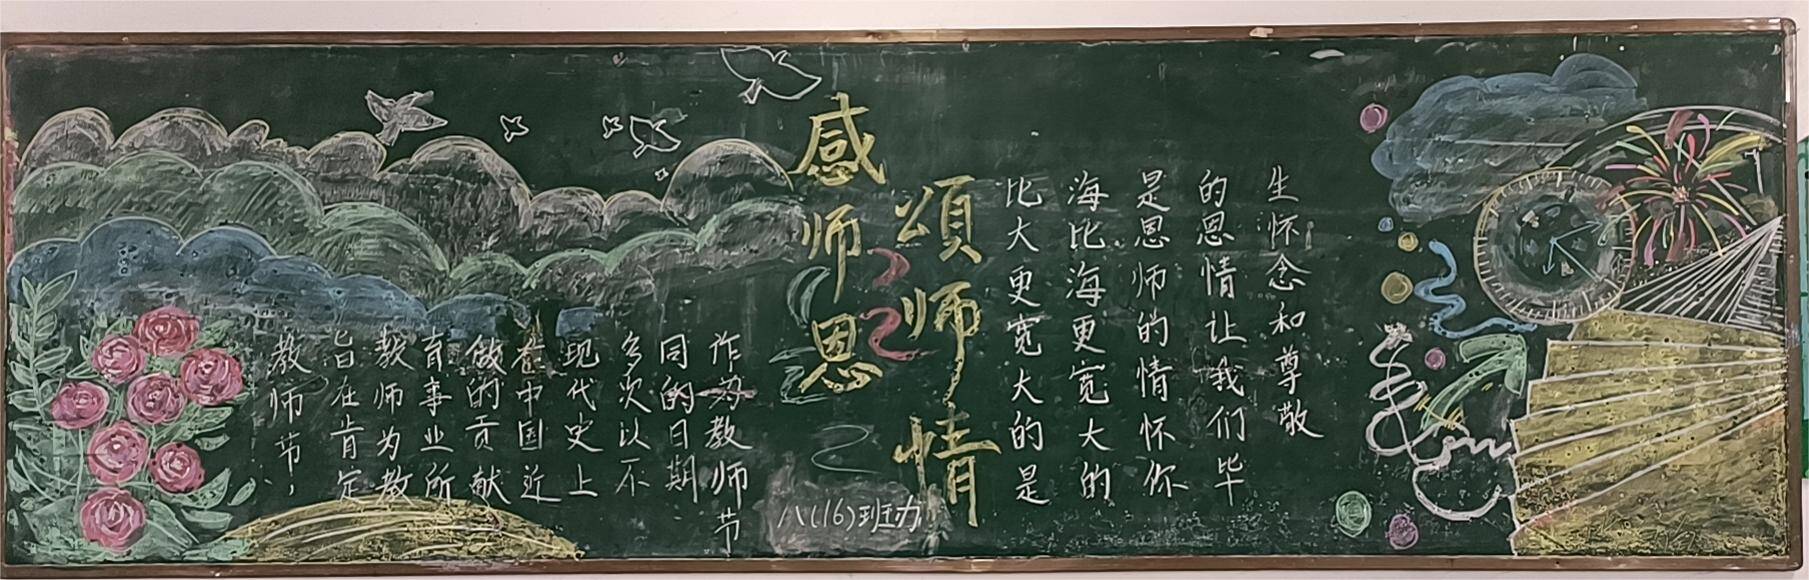 教师节，
旨在肯定
教师为教
育事业所
做的贡献
在中国近
现代史上
多次以不
同的日期
作为教师节
感师恩
頌师情
八(16)班办
比大更宽大的是
海比海更宽大的
是恩师的情怀你
的恩情让我们毕
生怀念和尊敬